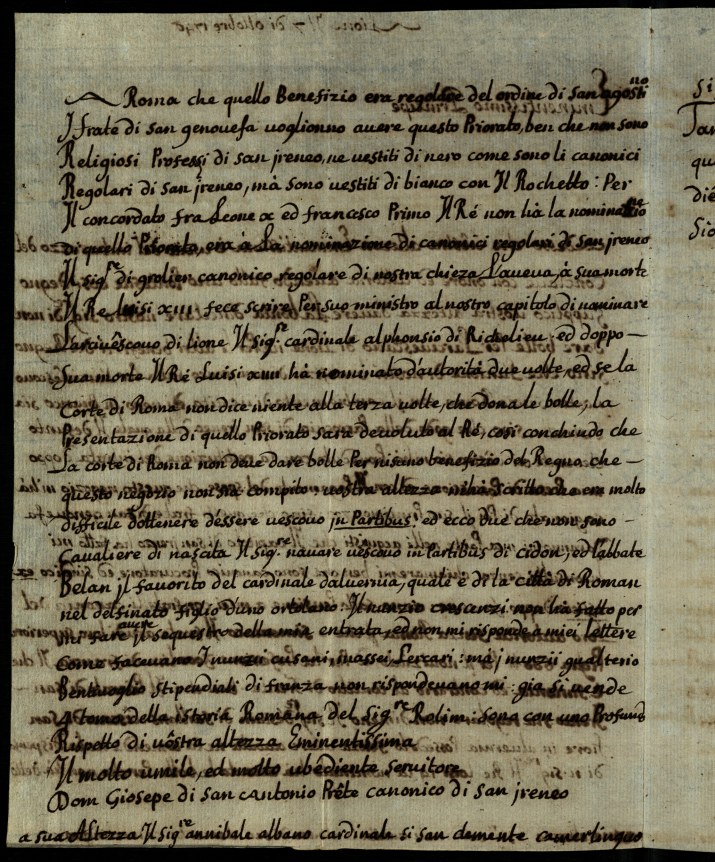 A Roma che quello Benefizio era regolare del ordine di san Agostino
I frate di san genouefa uoglionno auere questo Priorato, ben che non sono
Religiosi Professi di san jreneo, ne uestiti di nero come sono li canonici
Regolari di san jreneo, mà sono uestiti di bianco con Il Rochetto: Per
Il concordato fra Leone x ed francesco Primo Il Ré non hà la nominazio
di quello Priorato, era à La nominazione di canonici regolari di san jreneo
Il sigre di grolier canonico regolare di nostra chieza L'aueua, à sua morte
Il Re Luisi xiii fece scrire Per suo ministro al nostro capitolo di naminare
Larciuêscouo di lione Il sigre cardinale alphonsio di Richelieu, ed doppo
sua morte Il Ré Luisi xiiii hà nominato d'autorità due uolte, ed se la
Corte di Roma non dice niente alla terza uolte, che dona le bolle, la
Presentazione di quello Priorato sarà deuoluto al Ré, cosi conchiudo che
La corte di Roma non deue dare bolle Per nisuno benefizio del Regno che
questo negozio non sia compito: uostra altezza mi hà scritto che era molto
difficile d'ottenere d'éssere uescouo jn Partibus: ed ecco due che non sono
Caualiere di nascita Il sigre nauare uescouo in Partibus di cidon, ed l'abbate
Belan jl fauorito del cardinale daluernia, quale è di la città di Roman
nel delfinato figlio d'uno ortolano: Il nunzio crescenzi non hà fatto per
mi fare auere jl sequestro della mia entrata, ed non mi risponde à miei lettere
Come faceuano I nunzii cusani, massei Lercari: mà j nunzii gualterio
Bentiuoglio stipendiati di franza non rispondeuano mi: già si uende
4 tomo della istoria Romana del sigre Rolim: sono con uno Profund
Rispetto di uôstra altezza Eminentissima
Il molto umile, ed molto ubédiente seruitore
Dom Giosepe di san cantonio Prête canonico di san jreneo
a sua Altezza Il sigre annibale albano cardinale di san clemente camerlinguo